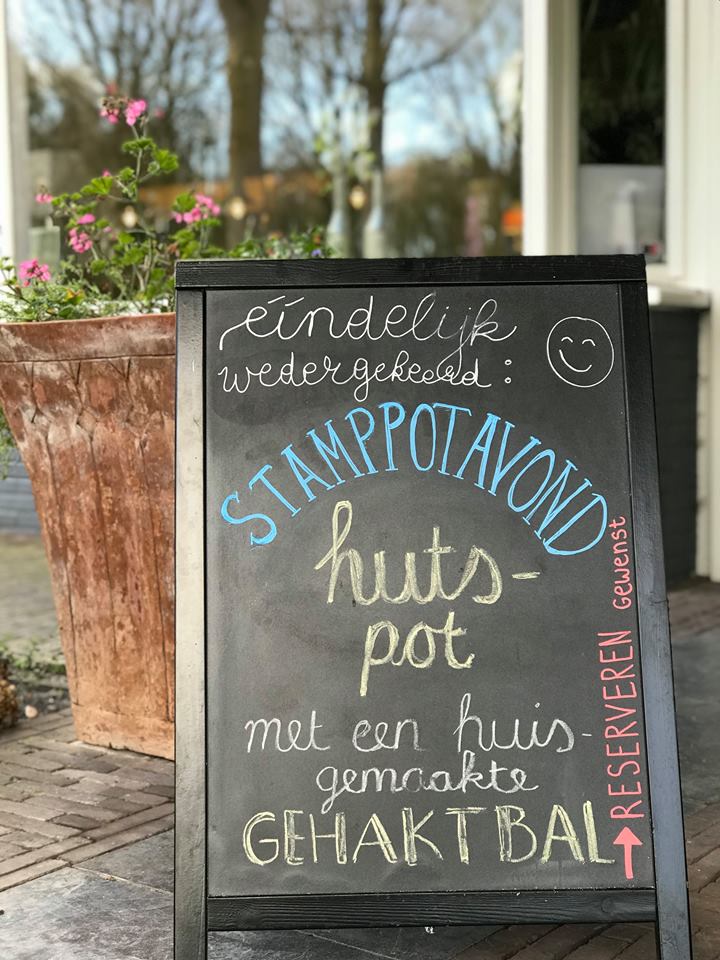 eíndelijk
wedergekeerd:
STAMPPOTAVOND
huts-
pot
met een huis-
gemaakte
GEHAKTBAL
RESERVEREN gewenst